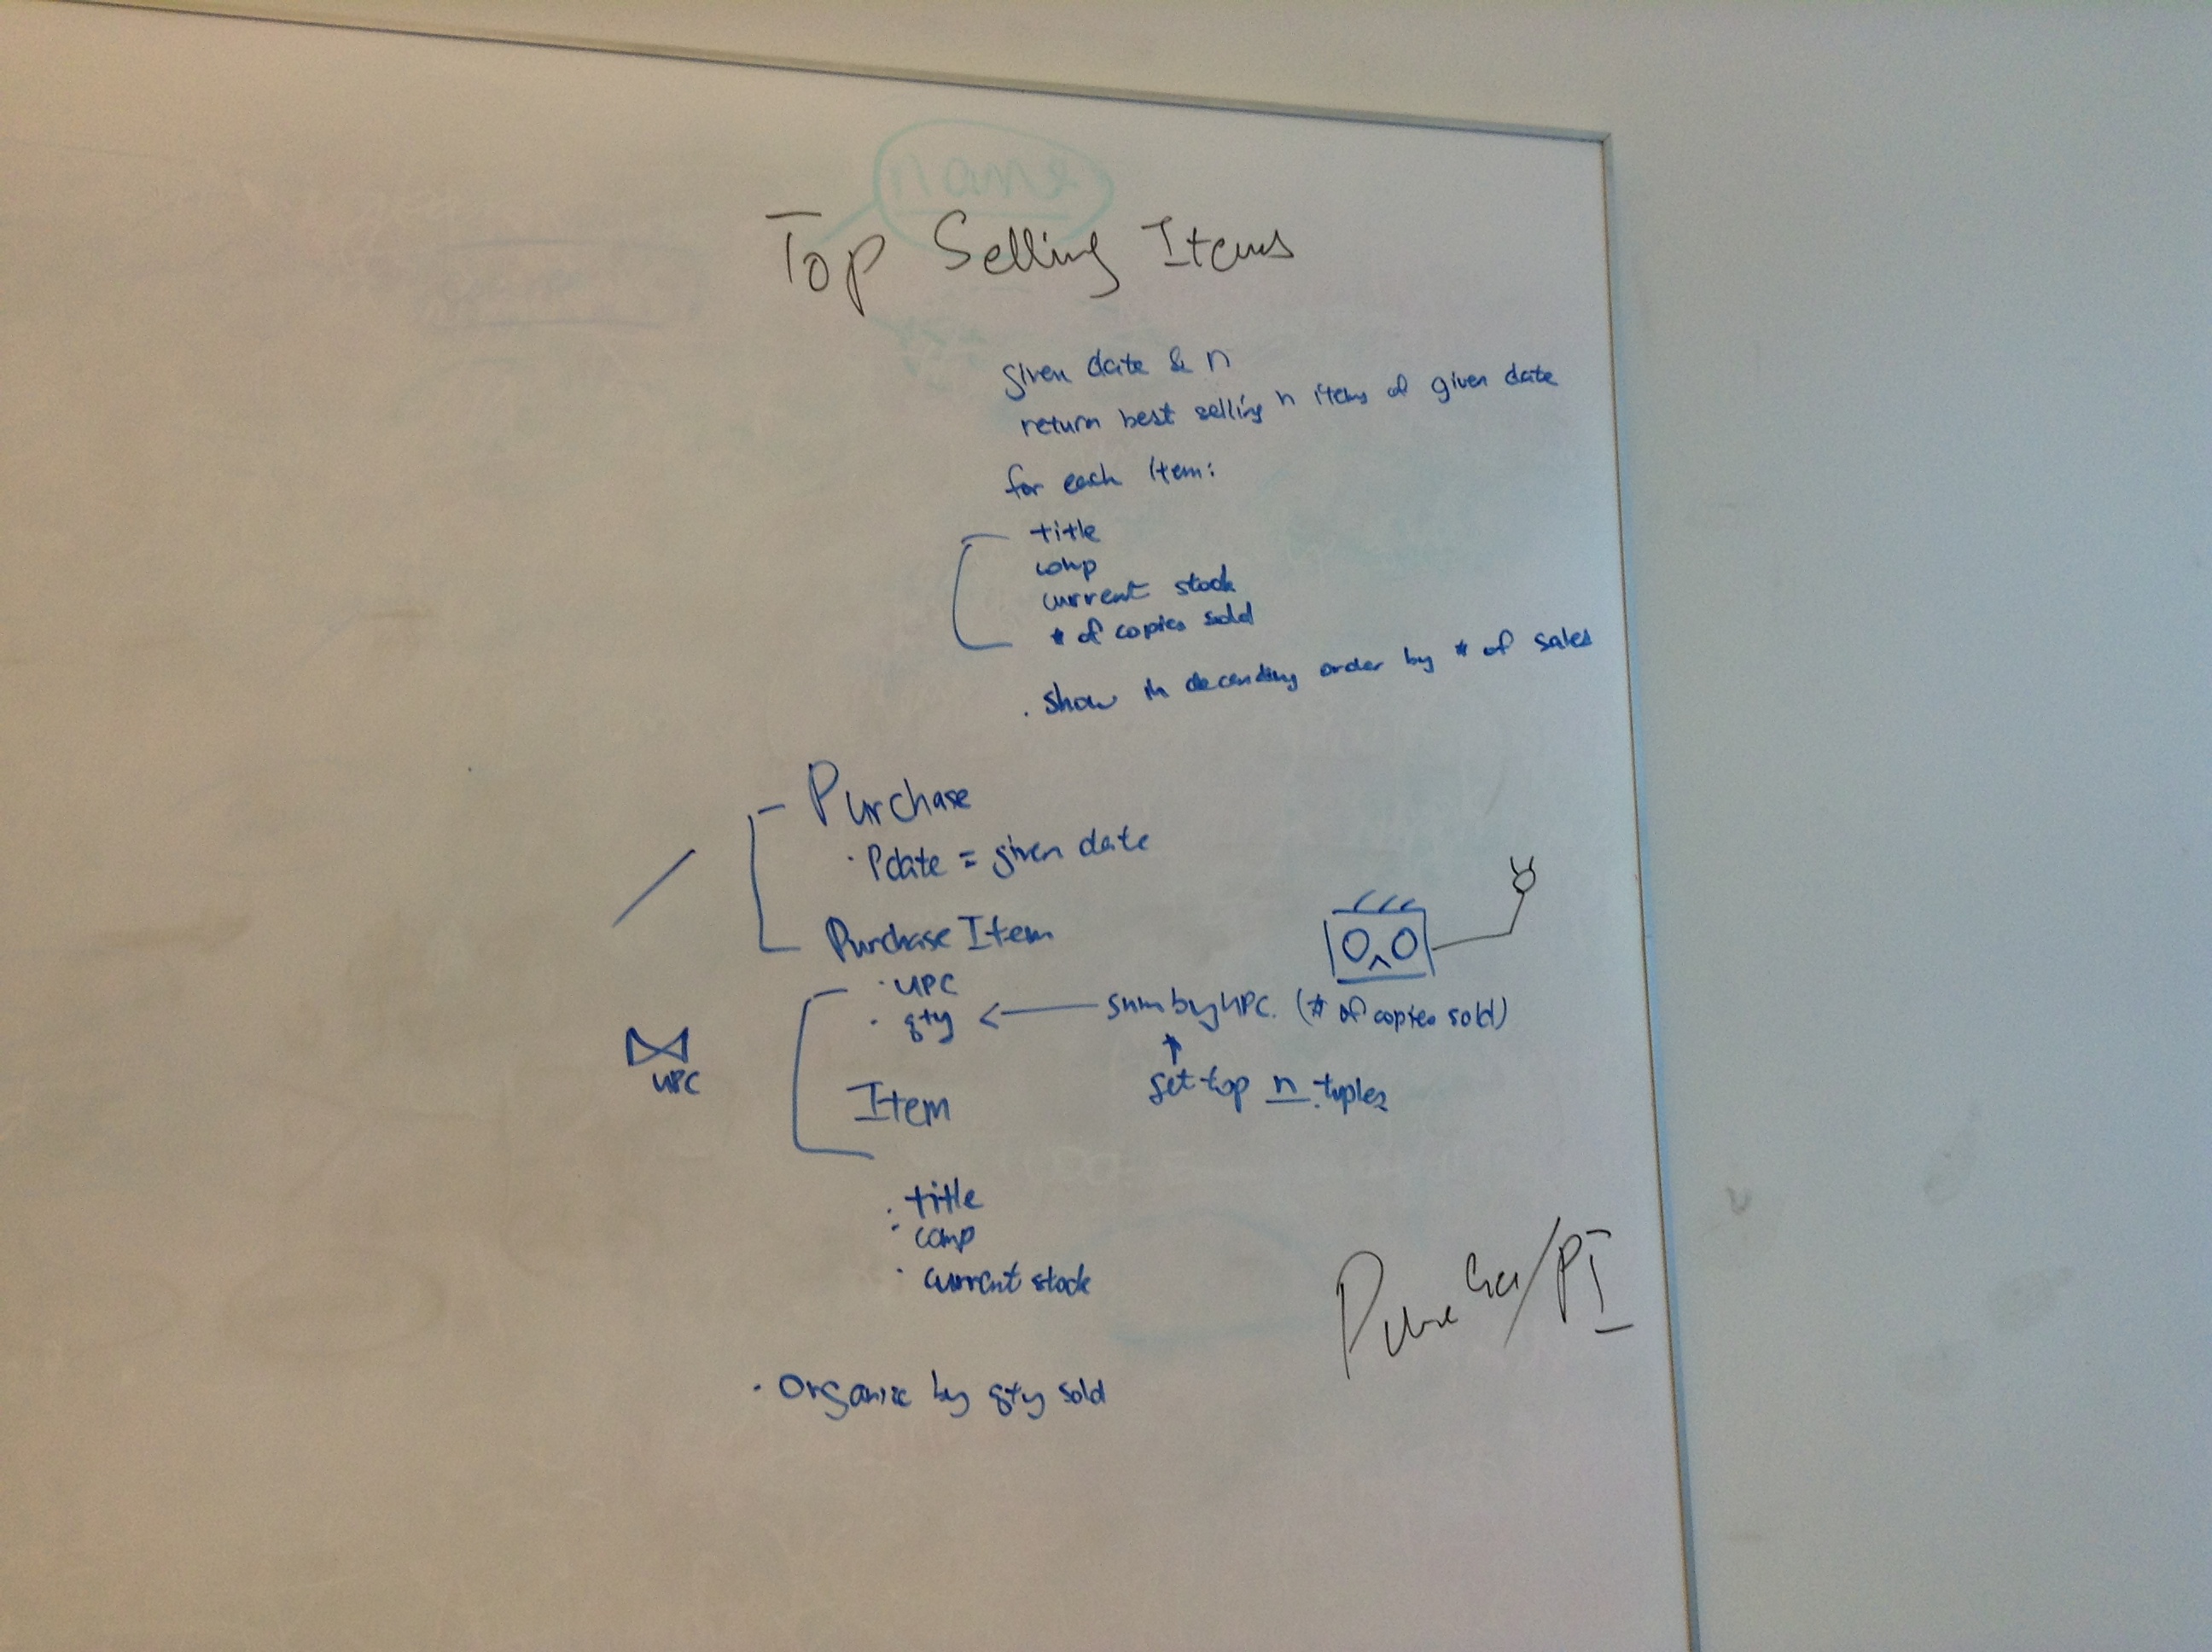 email
Top Selling Items
given date & n
return best selling n items of given date
for each item:
title
comp
current stock
# of copies sold
. show in decending order by # of sales
Purchase
· Pdate = given date
Purchase Item
· UPC
· qty ← sum by UPC. (# of copies sold)
UPC
get top n tuples
Item
· title
· comp
· current stock
/PI
· Organize by qty sold